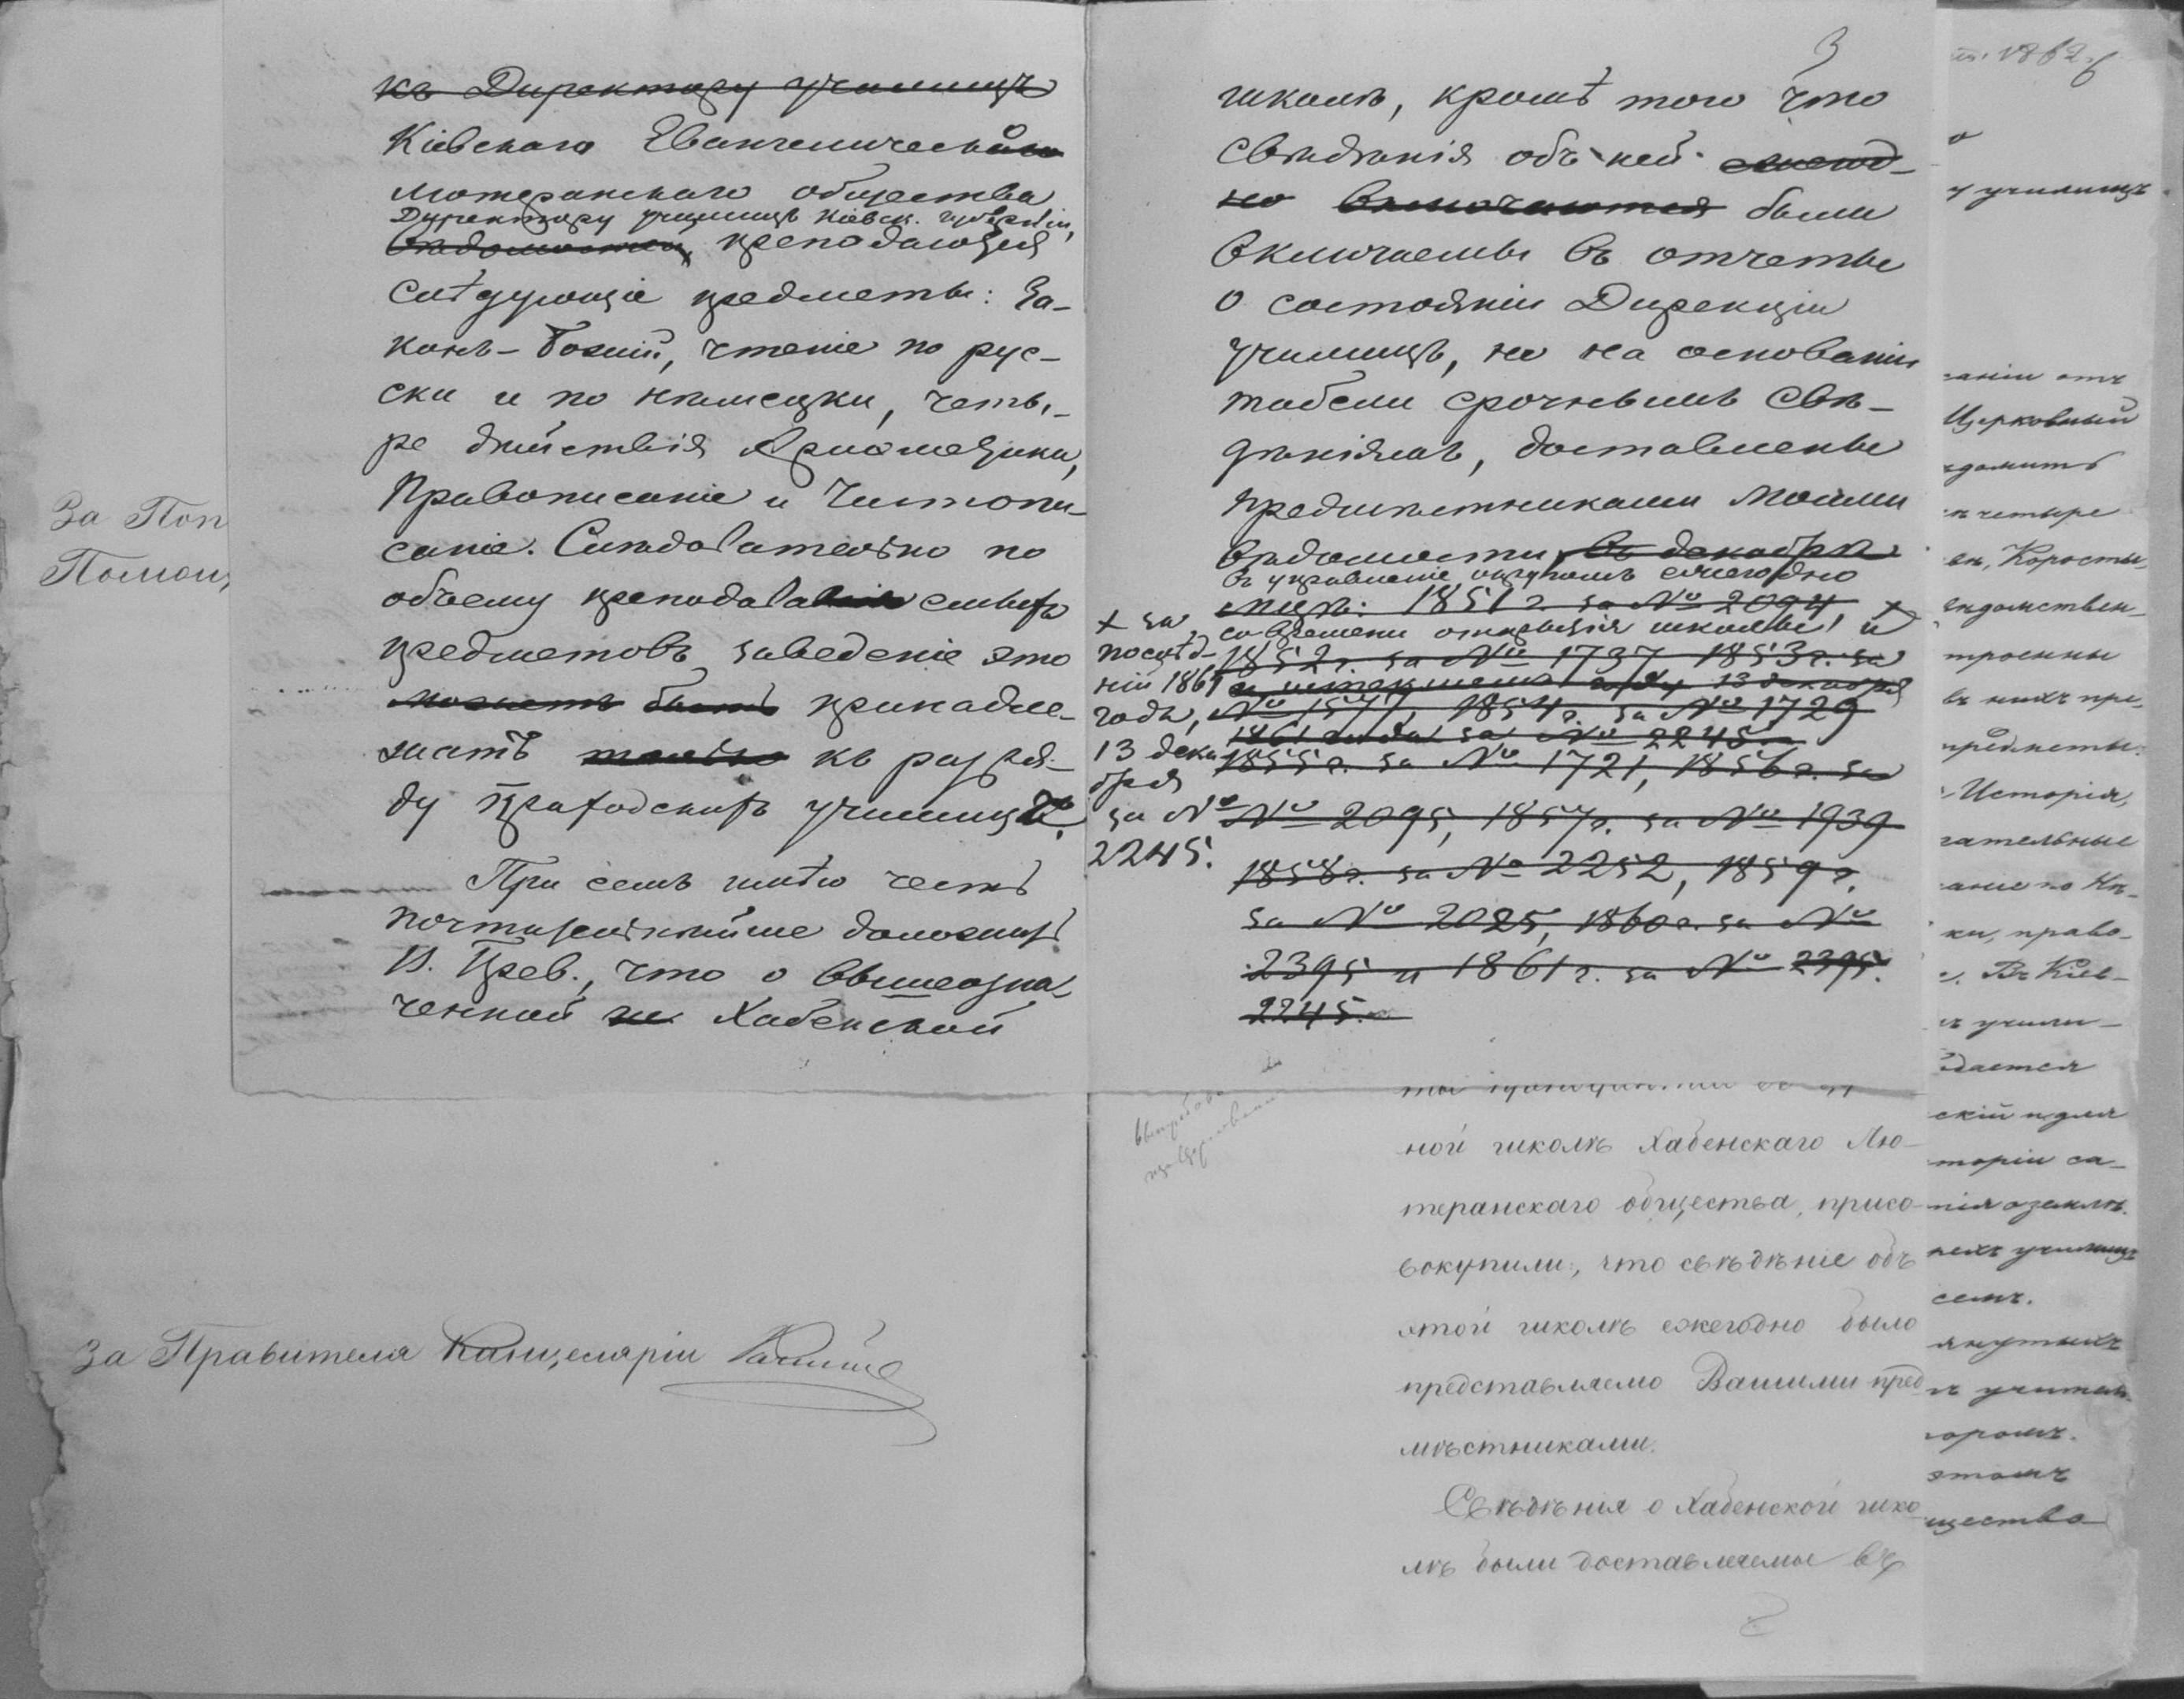 къ Директору училищъ
Кіевскаго Евангелическо
лютеранскаго общества
Директору училищъ Кіевск. губерніи,
вѣдомости, преподаются
слѣдующіе предметы: За-
конъ-Божій, чтеніе по рус-
ски и по нѣмецки, четы-
ре дѣйствія Ариѳметики,
Правописаніе и Чистопи-
саніе. Слѣдовательно по
объему преподава сихъ
предметовъ заведеніе это
можетъ быть принадле-
жатъ только къ разря-
ду приходскихъ училищъ.
При семъ имѣю честь
почтительнѣйше доложить
В. Прев., что о вышеозна-
ченной Хабенской
За Поп
Помощ
За Правителя Канцеляріи
3
школѣ, кромѣ того что
свѣдѣнія объ ней ежегод-
но включаются были
включаемы въ отчеты
о состояніи Дирекціи
училищъ, но на основаніи
табели срочнымъ свѣ-
дѣніямъ, доставлены
предмѣстниками моими
вѣдомости, въ декабрѣ
въ управленіе округомъ ежегодно
мѣс.: 1851 г. за № 2094 +
со времени открытія школы и
1852 г. за № 1737 1853 г. за
году 13 декабря
№ 1577, 1854 г. за № 1729
1861 года за № 2245
1855 г. за № 1721, 1856 г. за
№ 2095, 1857 г. за № 1939
1858 г. за № 2252, 1859 г.
за № 2025, 1860 г. за №
2395 и 1861 г. за № 2395.
2245.
+ за
послѣд-
ній 1861
годъ,
13 дека
бря
за №
2245.
ной школѣ Хабенскаго Лю-
теранскаго общества, присо-
вокупили, что свѣдѣніе объ
этой школѣ ежегодно было
представляемо Вашими пред
мѣстниками.
Свѣдѣнія о Хабенской шко
лѣ были доставляемы въ
1862
о
у училищъ
заніи отъ
Церковный
ѣдомитъ
ъ четыре
ѣн, Коросты-
ѣдомствен-
троенны
въ нихъ пре-
предметы:
Исторія,
зательные
аніе по Кн-
ки, право-
Въ Кіев-
ъ учили-
дается
скій и для
торіи са-
нія о землѣ.
нехъ училищъ
семъ.
янутыхъ
ъ учител
оромъ.
этомъ
щество